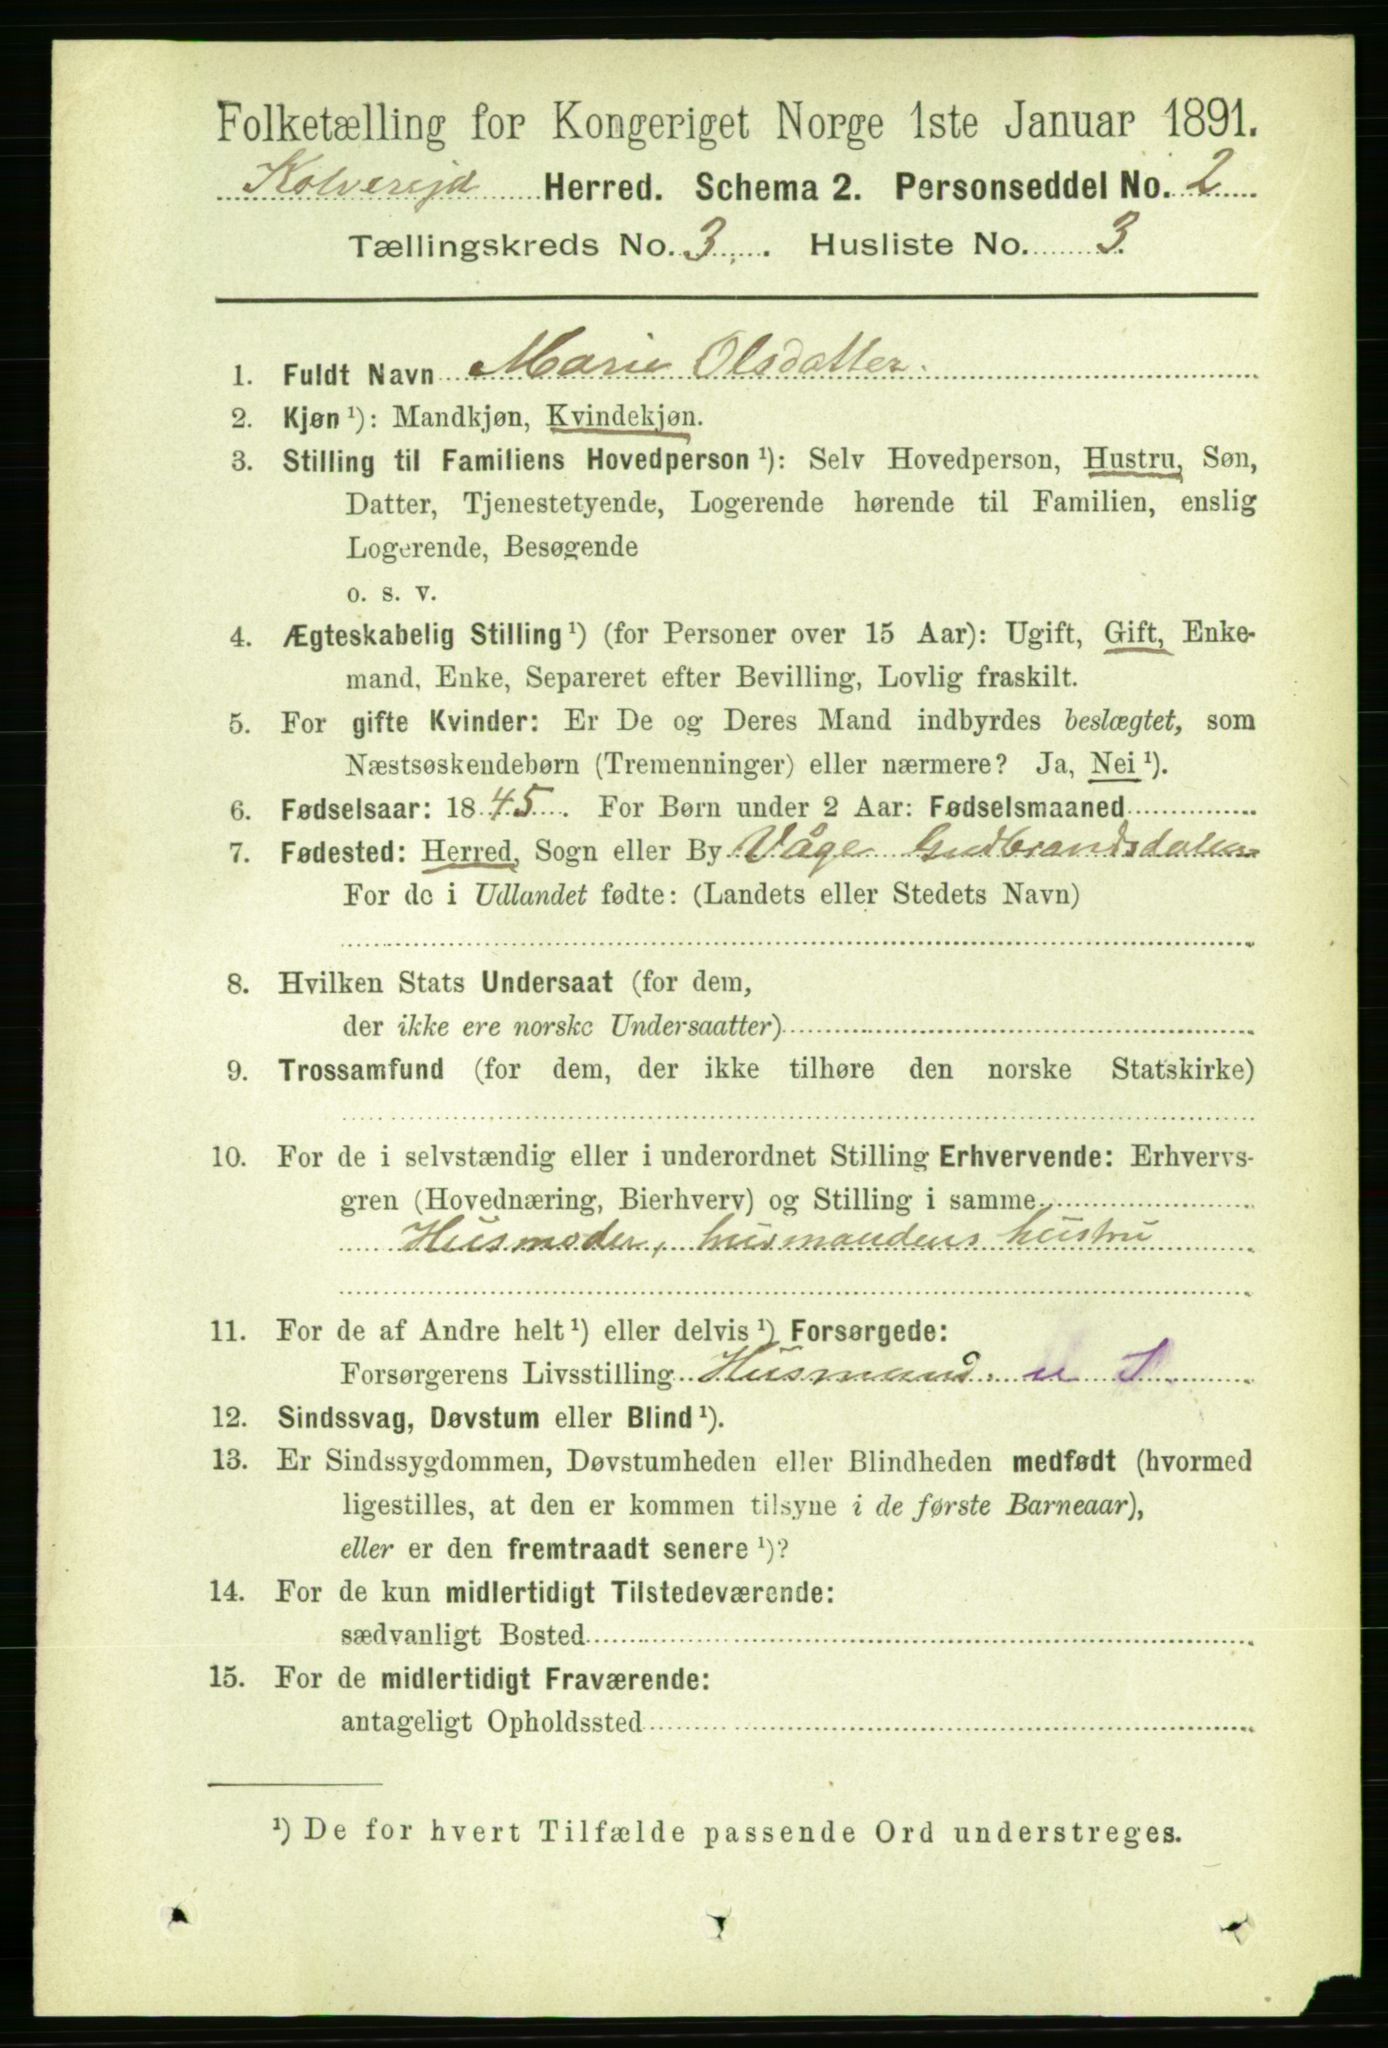 Folketælling for Kongeriget Norge 1ste Januar 1891.
Kolvereid Herred. Schema 2. Personseddel No. 2
Tællingskreds No. 3. Husliste No. 3.
1. Fuldt Navn Marie Olsdatter.
2. Kjøn ¹): Mandkjøn, Kvindekjøn.
3. Stilling til Familiens Hovedperson ¹): Selv Hovedperson, Hustru, Søn,
Datter, Tjenestetyende, Logerende hørende til Familien, enslig
Logerende, Besøgende
o. s. v.
4. Ægteskabelig Stilling ¹) (for Personer over 15 Aar): Ugift, Gift, Enke-
mand, Enke, Separeret efter Bevilling, Lovlig fraskilt.
5. For gifte Kvinder: Er De og Deres Mand indbyrdes beslægtet, som
Næstsøskendebørn (Tremenninger) eller nærmere? Ja, Nei ¹).
6. Fødselsaar: 1845. For Børn under 2 Aar: Fødselsmaaned
7. Fødested: Herred, Sogn eller By Våge Gudbrandsdalen
For de i Udlandet fødte: (Landets eller Stedets Navn)
8. Hvilken Stats Undersaat (for dem,
der ikke ere norske Undersaatter)
9. Trossamfund (for dem, der ikke tilhøre den norske Statskirke)
10. For de i selvstændig eller i underordnet Stilling Erhvervende: Erhvervs-
gren (Hovednæring, Bierhverv) og Stilling i samme
Husmoder, husmandens hustru
11. For de af Andre helt ¹) eller delvis ¹) Forsørgede:
Forsørgerens Livsstilling Husmand.
12. Sindssvag, Døvstum eller Blind ¹).
13. Er Sindssygdommen, Døvstumheden eller Blindheden medfødt (hvormed
ligestilles, at den er kommen tilsyne i de første Barneaar),
eller er den fremtraadt senere ¹)?
14. For de kun midlertidigt Tilstedeværende:
sædvanligt Bosted
15. For de midlertidigt Fraværende:
antageligt Opholdssted
¹) De for hvert Tilfælde passende Ord understreges.